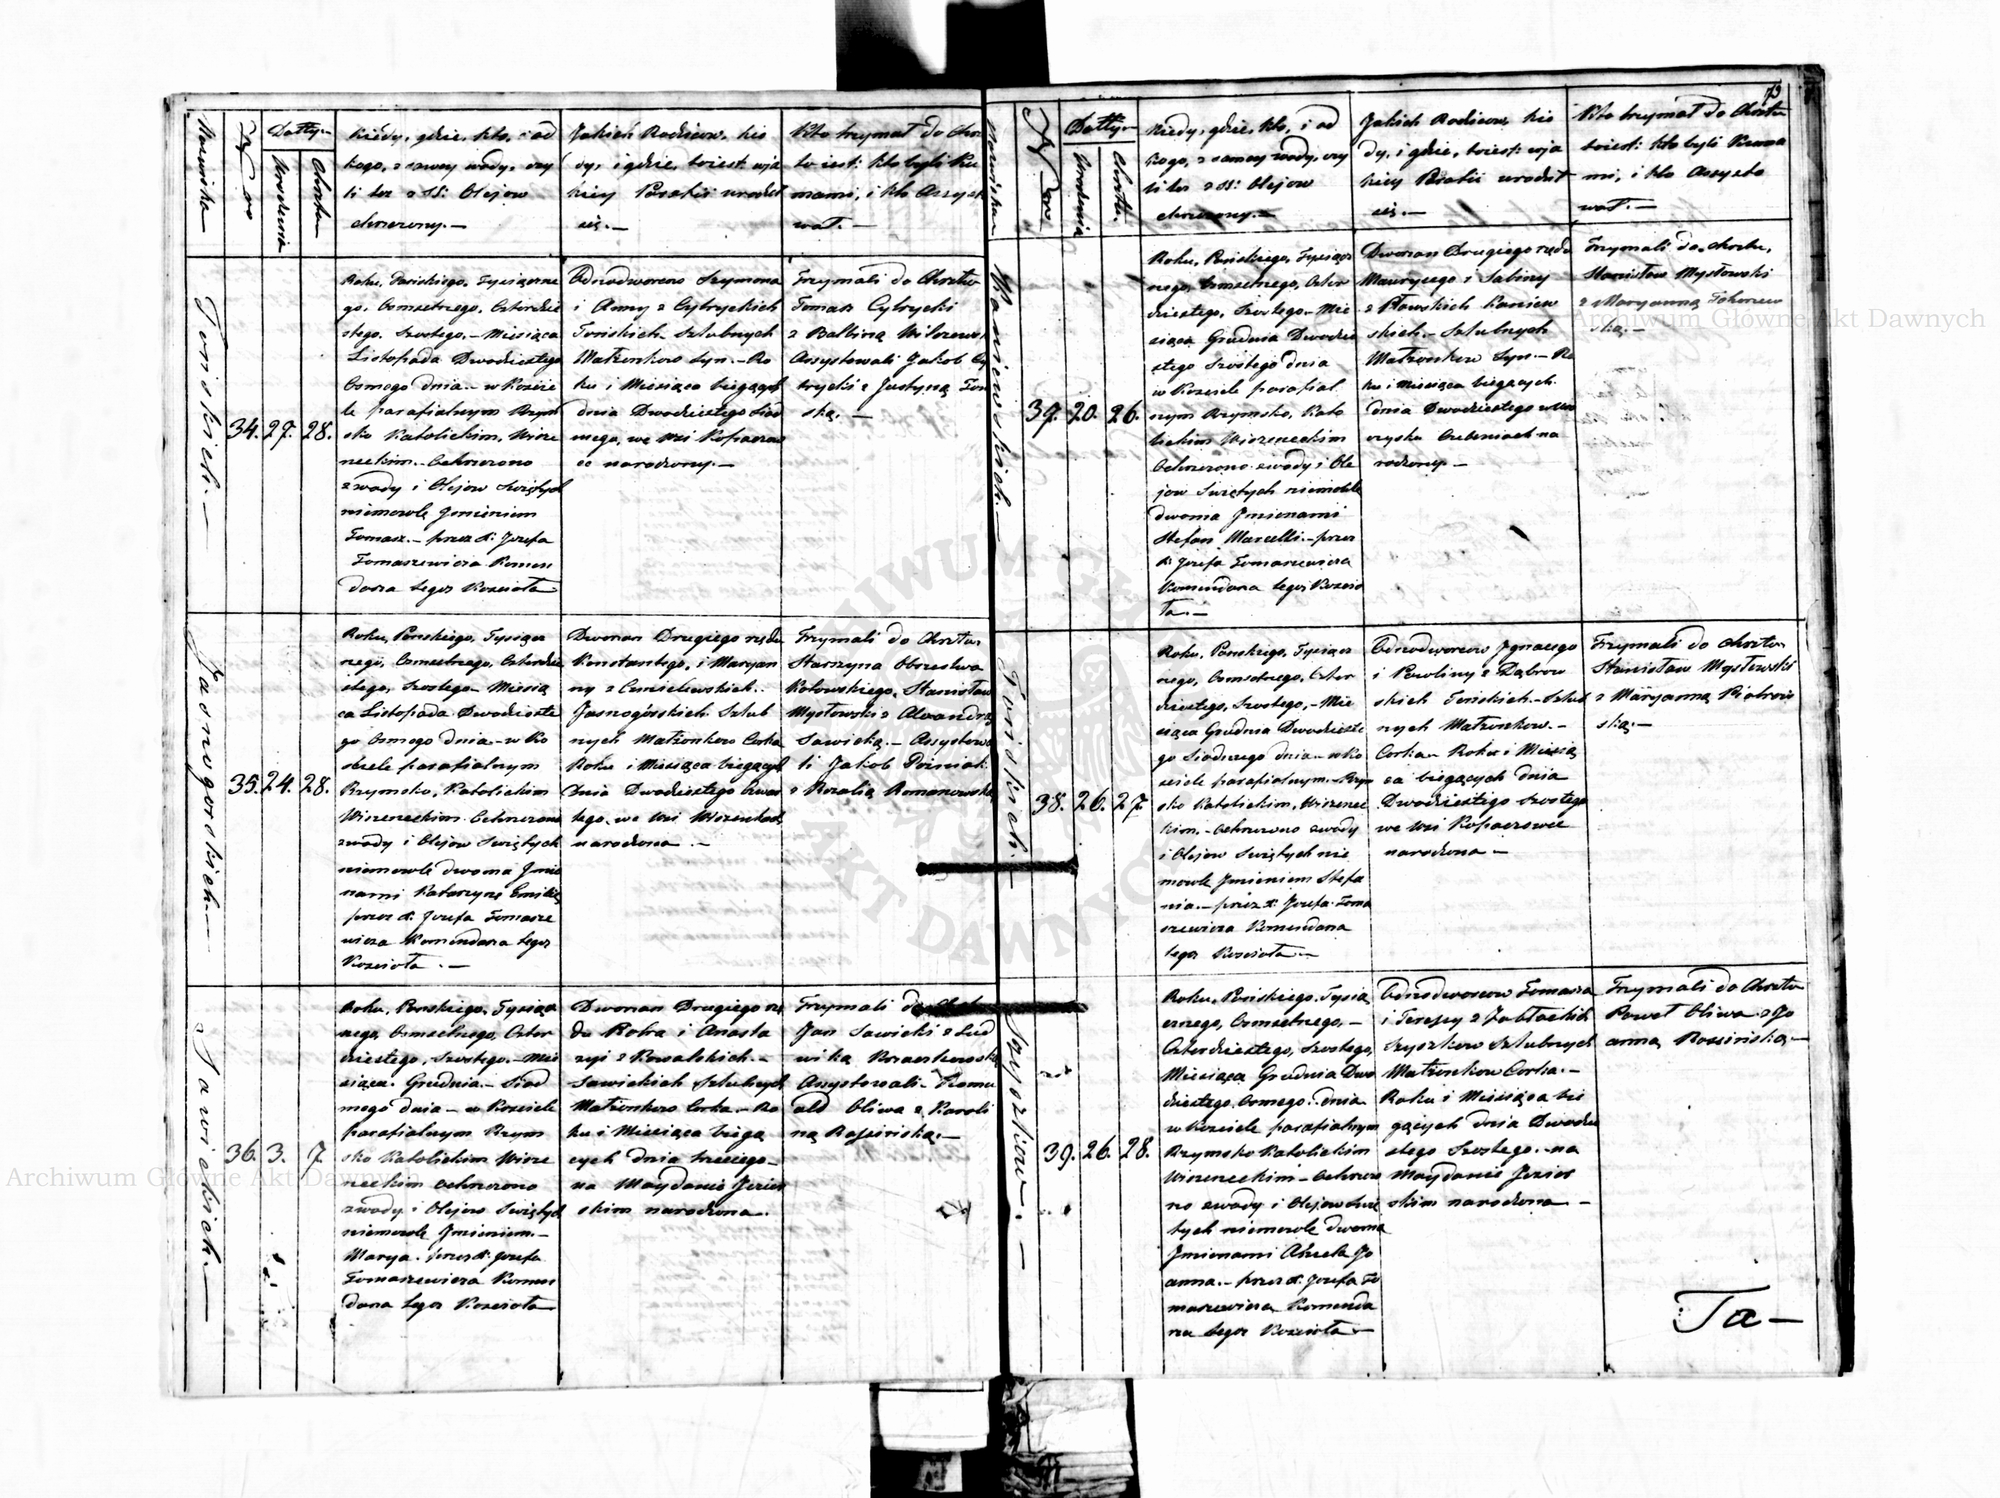 Nazwiska
Daty
Urodzenia
Chrztu
Kiedy, gdzie, kto, i od
kogo, z samey wody, czy
li też z SS: Olejow
chrzczony.—
Jakich Rodzicow, kie
dy, i gdzie, toiest: w ja
kiey Parafii urodził
się.—
Kto trzymał do Chrz
to iest: kto byli Ku
mami, i kto Assyst
wał.—
Toniskich.—
34. 27. 28.
Roku, Pańskiego, Tysiączne
go, Osmsetnego, Czterdzie
stego, Szostego.— Miesiąca
Listopada Dwodziestego
Osmego dnia.— w Koście
le parafialnym Rzym
sko Katolickim, Wisze
neckim.— Ochrzczono
z wody i Olejow Swiętych
niemowle Jmieniem
Tomasz.— przez X: Jozefa
Tomaszewicza Komen
darza tegoż Kościoła
Odnodworcow Szymona
i Anny z Cybryckich
Toniskich Szlubnych
Małżonkow Syn.— Ro
ku i Miesiąca bieżących
dnia Dwodziestego Siod
mego, we Wsi Kopaczow
ce narodzony.—
Trzymali do Chrztu
Tomasz Cybrycki
z Balbiną Wilczews
Assystowali Jakob Cy
brycki z Justyną Ton
ską.—
Jasnogorskich.—
35. 24. 28.
Roku, Pańskiego, Tysiącz
nego, Osmsetnego, Czterdzie
stego, Szostego.— Miesią
ca Listopada Dwodzieste
go Osmego dnia.— w Ko
sciele parafialnym
Rzymsko, Katolickim
Wiszeneckim Ochrzczono
z wody i Olejow Swiętych
niemowle dwoma Jmie
nami Katarzyna Emilia
przez X: Jozefa Tomasze
wicza Komendarza tegoż
Kościoła.—
Dworzan Drugiego rzędu
Konstantego, i Maryan
ny z Cmielewskich
Jasnogórskich Szlub
nych Małżonkow Corka
Roku i Miesiąca bieżących
Dnia Dwodziestego Czwar
tego, we Wsi Wiszenkach
narodzona.—
Trzymali do Chrztu
Starszyna Obzestwa
Kotowskiego, Stanisław
Mysłowski z Alexandrą
Sawicką.— Assystowa
li Jakob Pozniak
z Rozalią Romanowską
Sawickich.—
36. 3. 7.
Roku, Pańskiego, Tysiącz
nego, Osmsetnego, Czter
dziestego, Szostego.— Mie
siąca Grudnia.— Siod
mego dnia— w Kosciele
parafialnym Rzym
sko Katolickim Wisze
neckim Ochrzczono
z wody i Olejow Swiętych
niemowle Jmieniem.—
Marya. przez X: Jozefa
Tomaszewicza Komen
darza tegoż Kościoła
Dworzan Drugiego rzę
du Piotra i Anasta
zyi z Kowalskich.—
Sawickich Szlubnych
Małżonkow Corka.— Ro
ku i Miesiąca bieżą
cych dnia trzeciego—
na Maydanie Jezier
skim narodzona.
Trzymali do Chrztu
Jan Sawicki z Lud
wiką
Assystowali— Romu
ald Oliwa z Karoli
ną Rossińską.—
73
Nazwiska
Daty
Urodzenia
Chrztu
Kiedy, gdzie, kto, i od
kogo, z samey wody, czy
li też z SS: Olejow
chrzczony.—
Jakich Rodzicow, kie
dy, i gdzie, toiest: w ja
kiey Parafii urodził
się.—
Kto trzymał do Chrztu
toiest: kto byli Kuma
mi, i kto Assysto
wał.—
Kaniewskich.—
37. 20. 26.
Roku, Pańskiego, Tysiącz
nego, Osmsetnego, Czter
dziestego, Szostego.— Mie
siąca Grudnia Dwodzie
stego Szostego dnia
w Kosciele parafial
nym Rzymsko, Kato
lickim Wiszeneckim
Ochrzczono z wody i Ole
jow Swiętych niemowle
dwoma Jmionami
Stefan Marcelli.— przez
X: Jozefa Tomaszewicza
Komendarza tegoż Koscio
ła.—
Dworzan Drugiego rzędu
Maurycego i Sabiny
z Pławskich Kaniew
skich.— Szlubnych
Małżonkow Syn.— Ro
ku i miesiąca bieżących
dnia Dwodziestego w Uro
czysku Cubeniach na
rodzony.—
Trzymali do chrztu,
Stanisław Mysłowski
z Maryanną Tokarzew
ską.—
Toniskich.—
38. 26. 27.
Roku, Pańskiego, Tysiącz
nego, Osmsetnego, Czter
dziestego, Szostego,— Mie
siąca Grudnia Dwodzieste
go Siodmego dnia— w Ko
sciele parafialnym. Rzym
sko Katolickim, Wiszenec
kim.— Ochrzczono z wody
i Olejow Swiętych nie
mowle Jmieniem Stefa
nia.— przez X: Jozefa Toma
szewicza Komendarza
tegoż Kościoła.—
Odnodworcow Jgnacego
i Pauliny z Dąbrow
skich Toniskich.— Szlub
nych Małżonkow.—
Corka— Roku i Miesią
ca bieżących dnia
Dwodziestego szostego
we Wsi Kopaczowce
narodzona—
Trzymali do Chrztu
Stanisław Mysłowski
z Maryanną Piotrow
ską.—
Szyszkow.—
39. 26. 28.
Roku, Pańskiego. Tysią
cznego, Osmsetnego,—
Czterdziestego, Szostego,
Miesiąca Grudnia Dwo
dziestego Osmego. dnia
w Kosciele parafialnym
Rzymsko Katolickim
Wiszeneckim— Ochrzczo
no z wody i Olejow Swię
tych niemowle dwoma
Jmionami Aniela Jo
anna.— przez X: Jozefa To
maszewicza Komenda
rza tegoż Kościoła—
Odnodworcow Tomasza
i Teresy z Jabłońskich
Szyszkow Szlubnych
Małżonkow Corka.—
Roku i Miesiąca bie
żących dnia Dwodzie
stego Szostego.— na
Maydanie Jezier
skim narodzona—
Trzymali do Chrztu
Paweł Oliwa z Jo
anną Rossińską.—
Ta—
Archiwum Główne Akt Dawnych
Archiwum Główne Akt Dawnych
ARCHIWUM GŁÓWNE
AKT DAWNYCH